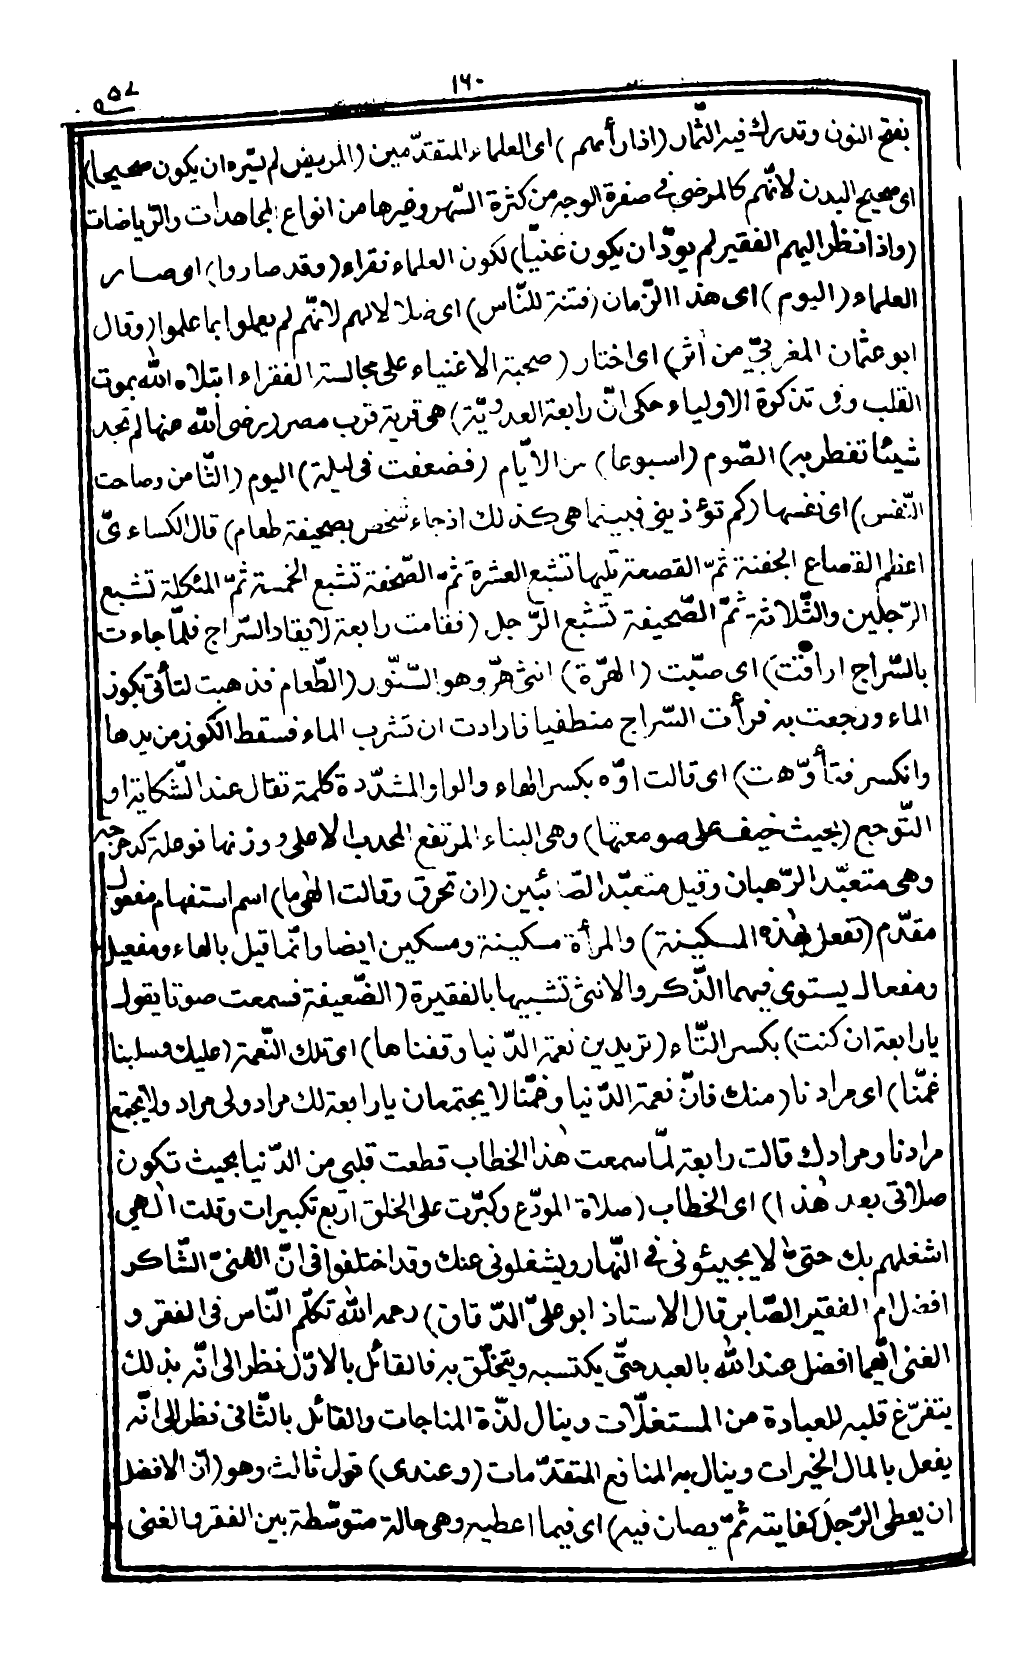 ١٦٠
بفتح النون وتدرك فيه الثّمار (اذا رأهم) اى العلماء المتقدّمين (المريض لم يسّره ان يكون صحيحا)
اى صحيح البدن لانّهم كالمرضى فى صفرة الوجه من كثرة السّهر وغيرها من انواع المجاهدات والرّياضات
(واذا نظر اليهم الفقير لم يودّ ان يكون غنيّا) لكون العلماء فقراء (وقد صاروا) اى صار
العلماء (اليوم) اى هذا الزّمان (فتنة للنّاس) اى ضلالا لهم لانّهم لم يعملوا بما علموا (وقال
ابو عثمان المغربىّ من اٰثر) اى اختار (صحبة الاغنياء على مجالسة الفقراء ابتلاه اللّٰه بموت
القلب وفى تذكرة الاولياء حكى انّ رابعة العدويّة) هى قرية قرب مصر (رضى اللّٰه عنها لم تجد
شيئا تفطر به) الصّوم (اسبوعا) من الايّام (فضعفت فى ليلة) اليوم (الثّامن وصاحت
النّفس) اى نفسها (كم تؤذينى فبينما هى كذلك اذ جاء شخص بصحيفة طعام) قال الكساءىّ
اعظم القصاع الجفنة ثمّ القصعة تليها تشبع العشرة ثمّ الصّحفة تشبع الخمسة ثمّ المئكلة تشبع
الرّجلين والثّلاثة ثمّ الصّحيفة تشبع الرّجل (فقامت رابعة لايقاد السّراج فلمّا جاءت
بالسّراج اراقت) اى صبّت (الهرّة) انثى هرّ وهو السّنّور (الطّعام فذهبت لتأتى بكوز
الماء ورجعت به فرأت السّراج منطفيا فارادت ان تشرب الماء فسقط الكوز من يدها
وانكسر فتأوّهت) اى قالت اوّه بكسر الهاء والواو المشدّدة كلمة تقال عند الشّكاية او
التّوجع (بحيث خيف على صومعتها) وهى البناء المرتفع المحدب الاعلى ووزنها فوعلة كدحرجة
وهى متعبّد الرّهبان وقيل متعبّد الصّابئين (ان تحرق وقالت الٰهى ما) اسم استفهام مفعول
مقدّم (تفعل بهٰذه المسكينة) والمرأة مسكينة ومسكين ايضا وانّما قيل بالهاء ومفعيل
ومفعال يستوى فيهما الذّكر والانثى تشبيها بالفقيرة (الضّعيفة فسمعت صوتا يقول
يا رابعة ان كنت) بكسر التّاء (تريدين نعمة الدّنيا وقفناها) اى تلك النّعمة (عليك وسلبنا
غمّنا) اى مرادنا (منك فانّ نعمة الدّنيا وغمّنا لا يجتمعان يا رابعة لك مراد ولى مراد ولا يجتمع
مرادنا ومرادك قالت رابعة لمّا سمعت هٰذا الخطاب قطعت قلبى من الدّنيا بحيث تكون
صلاتى بعد هٰذا) اى الخطاب (صلاة المودّع وكبّرت على الخلق اربع تكبيرات وقلت الٰهى
اشغلهم بك حتىّٰ لا يجيئونى فى النّهار ويشغلونى عنك وقد اختلفوا فى انّ الغنىّ الشّاكر
افضل ام الفقير الصّابر قال الاستاذ ابو علىّ الدّقان) رحمه اللّٰه تكلّم النّاس فى الفقر و
الغنى ايّهما افضل عند اللّٰه بالعبد حتّى يكتسبه ويتخلّق به فالقائل بالاوّل نظر الى انّه بذلك
يتفرّغ قلبه للعبادة من المستغلّات وينال لذّة المناجات والقائل بالثّانى نظر الى انّه
يفعل بالمال الخيرات وينال به المنافع المتقدّمات (وعندى) قول ثالث وهو (انّ الافضل
ان يعطى الرّجل كفايته ثمّ يصان فيه) اى فيما اعطيه وهى حالة متوسّطة بين الفقر والغنى